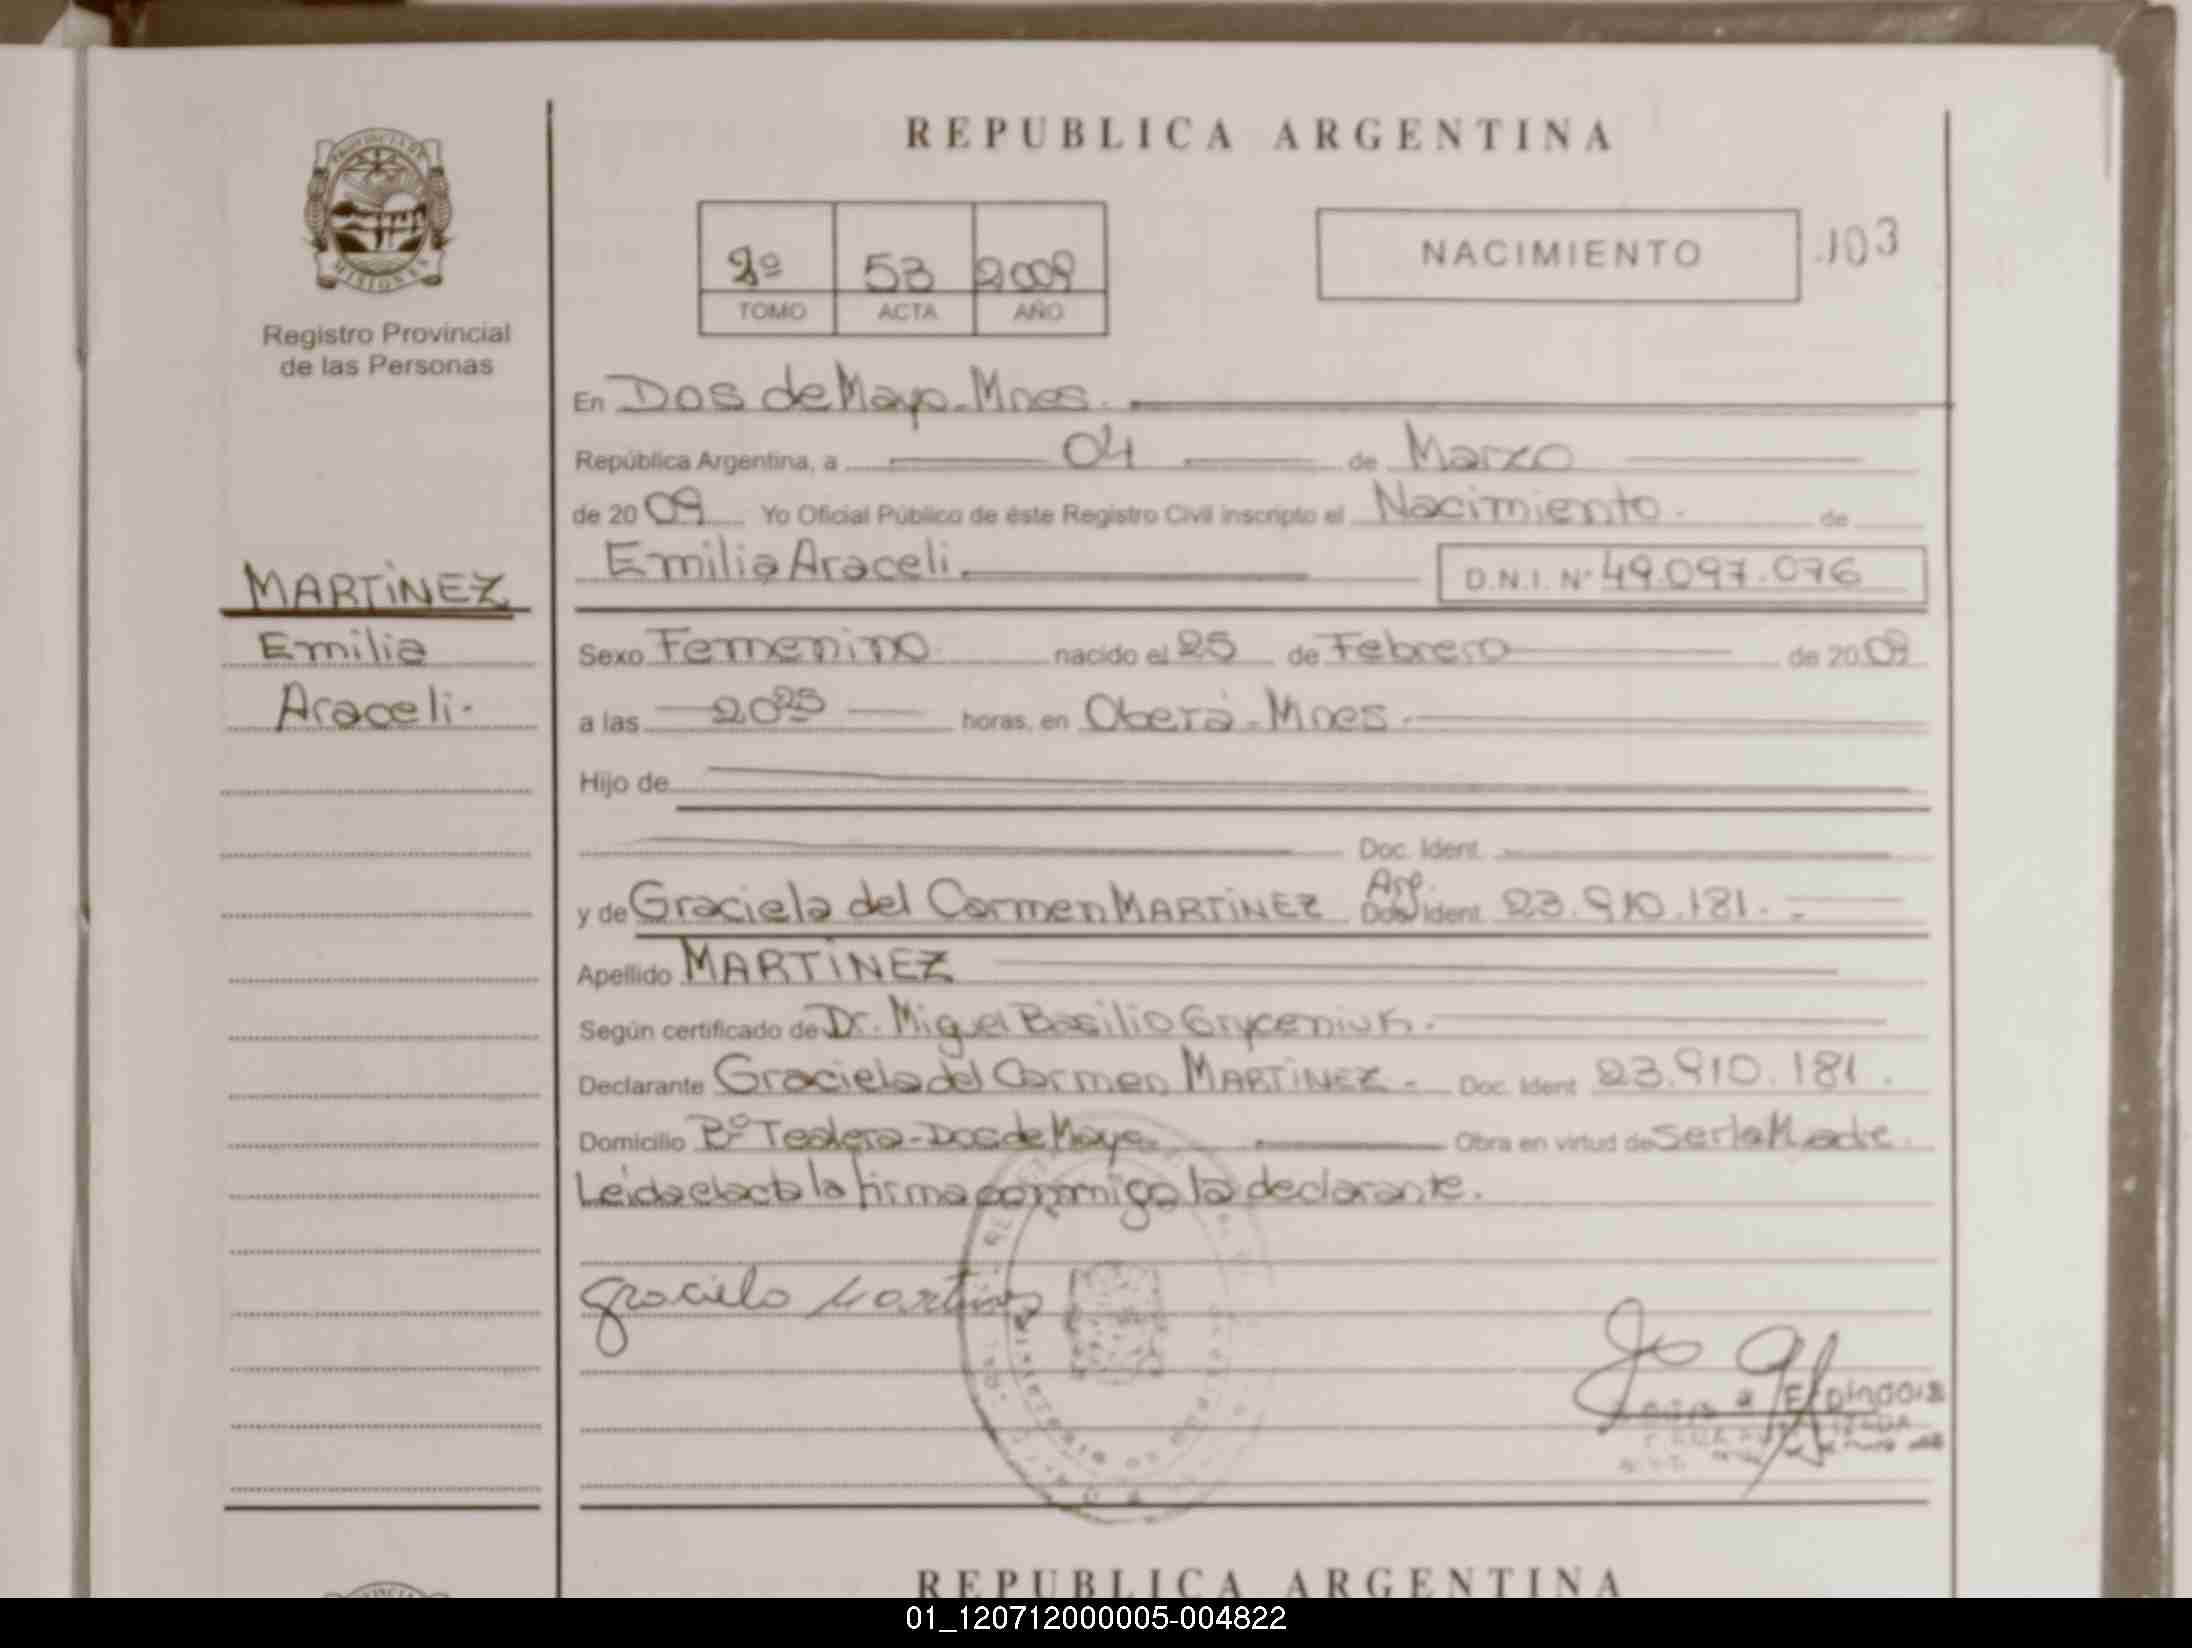 REPUBLICA ARGENTINA
PROVINCIA DE
MISIONES
Registro Provincial
de las Personas
2º 53 2009
TOMO ACTA AÑO
NACIMIENTO
103
En Dos de Mayo-Mnes.
República Argentina, a 04 de Marzo
de 2009 Yo Oficial Público de éste Registro Civil inscripto el Nacimiento. de
Emilia Araceli. D.N.I. Nº 49.097.076
MARTINEZ
Emilia
Araceli.
Sexo Femenino nacido el 25 de Febrero de 2009
a las 20 25 horas, en Oberá-Mnes.
Hijo de
Doc. Ident.
y de Graciela del Carmen MARTINEZ Arg. Doc. Ident. 23.910.181.
Apellido MARTINEZ
Según certificado de Dr. Miguel Basilio Gryceniuk.
Declarante Graciela del Carmen MARTINEZ. Doc. Ident 23.910.181.
Domicilio Bº Tealera-Dos de Mayo Obra en virtud de ser la Madre.
Leída el acta la firma conmigo la declarante.
Graciela Martinez
Espindola
REPUBLICA ARGENTINA
01_120712000005-004822